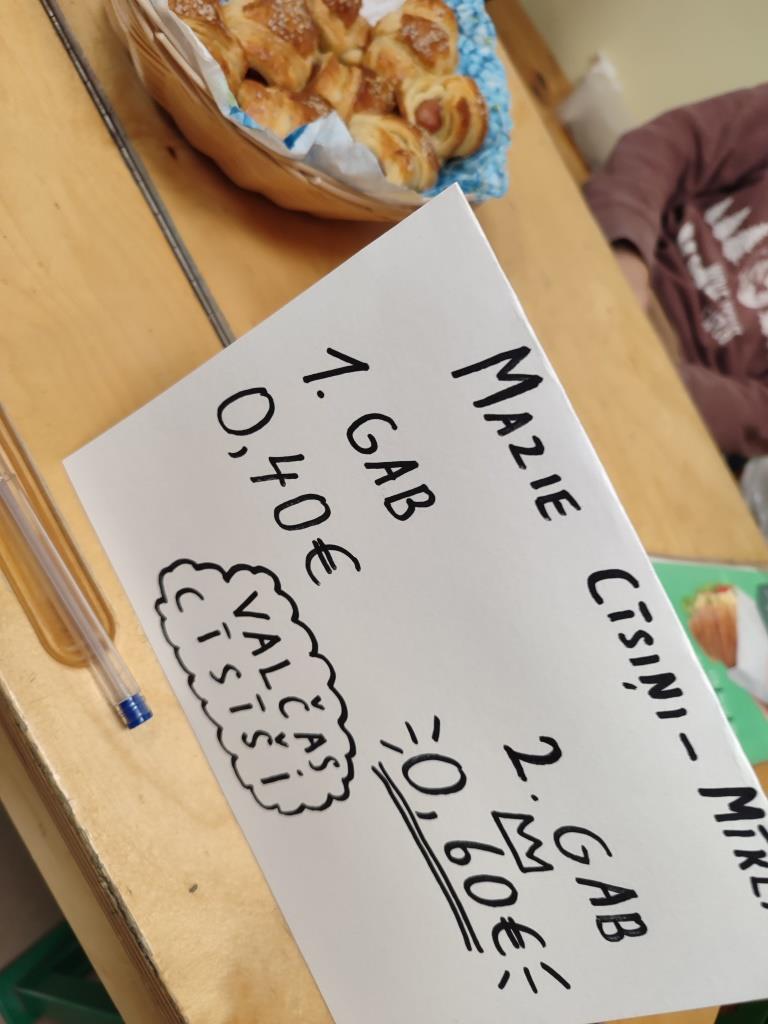 MAZIE CĪSIŅI –
1. GAB
0,40€
2. GAB
0,60€
VALČAS
CĪSĪŠI